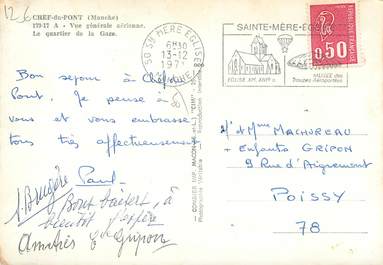 126
CHEF-du-PONT (Manche)
179-17 A - Vue générale aérienne.
Le quartier de la Gare.
50 STE MERE EGLISE
6H30
13-12
197
MANCHE
SAINTE-MÈRE-EGLISE
EGLISE XIIe XIIIe s.
MUSÉE des
Troupes Aéroportées
0,50
FRANCE
Bon séjour à Chef du
Pont. Je pense à
vous et vous embrasse
tous très affectueusement,
Paul.
J. Brugère
Bons baisers, à
bientôt j'espère
Amitiés E Gripon
COMBIER IMP. MACON (S.-et-L.) "CIM"
Photographie Véritable - Reproduction Interdite
M. et Mme MACHUREAU
+ Enfants GRIPON
9 Rue d'Aigremont
POISSY
78